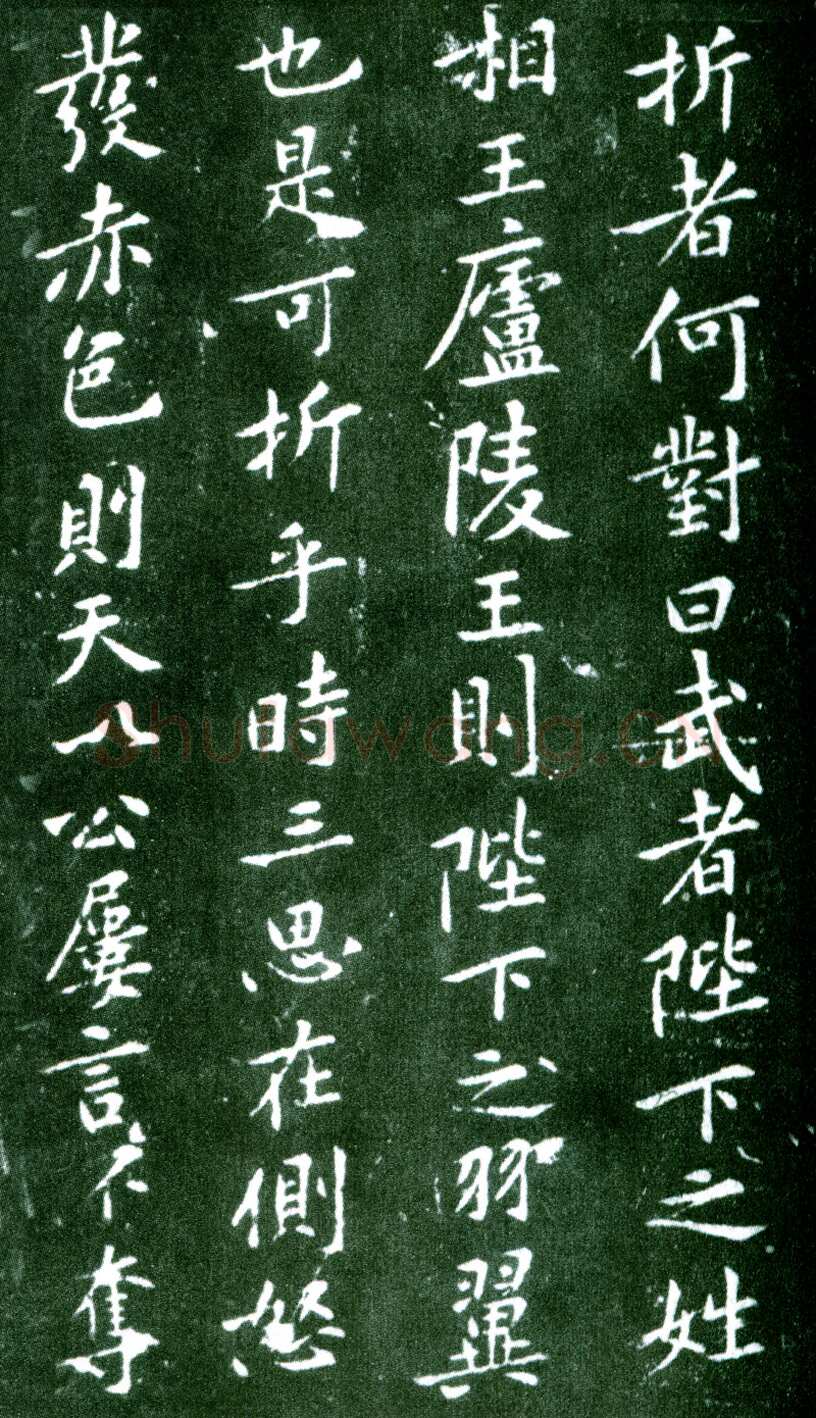 折者何對曰武者陛下之姓
相王廬陵王則陛下之羽翼
也是可折乎時三思在側怒
發赤色則天以公屢言不奪
Shufawang.cn